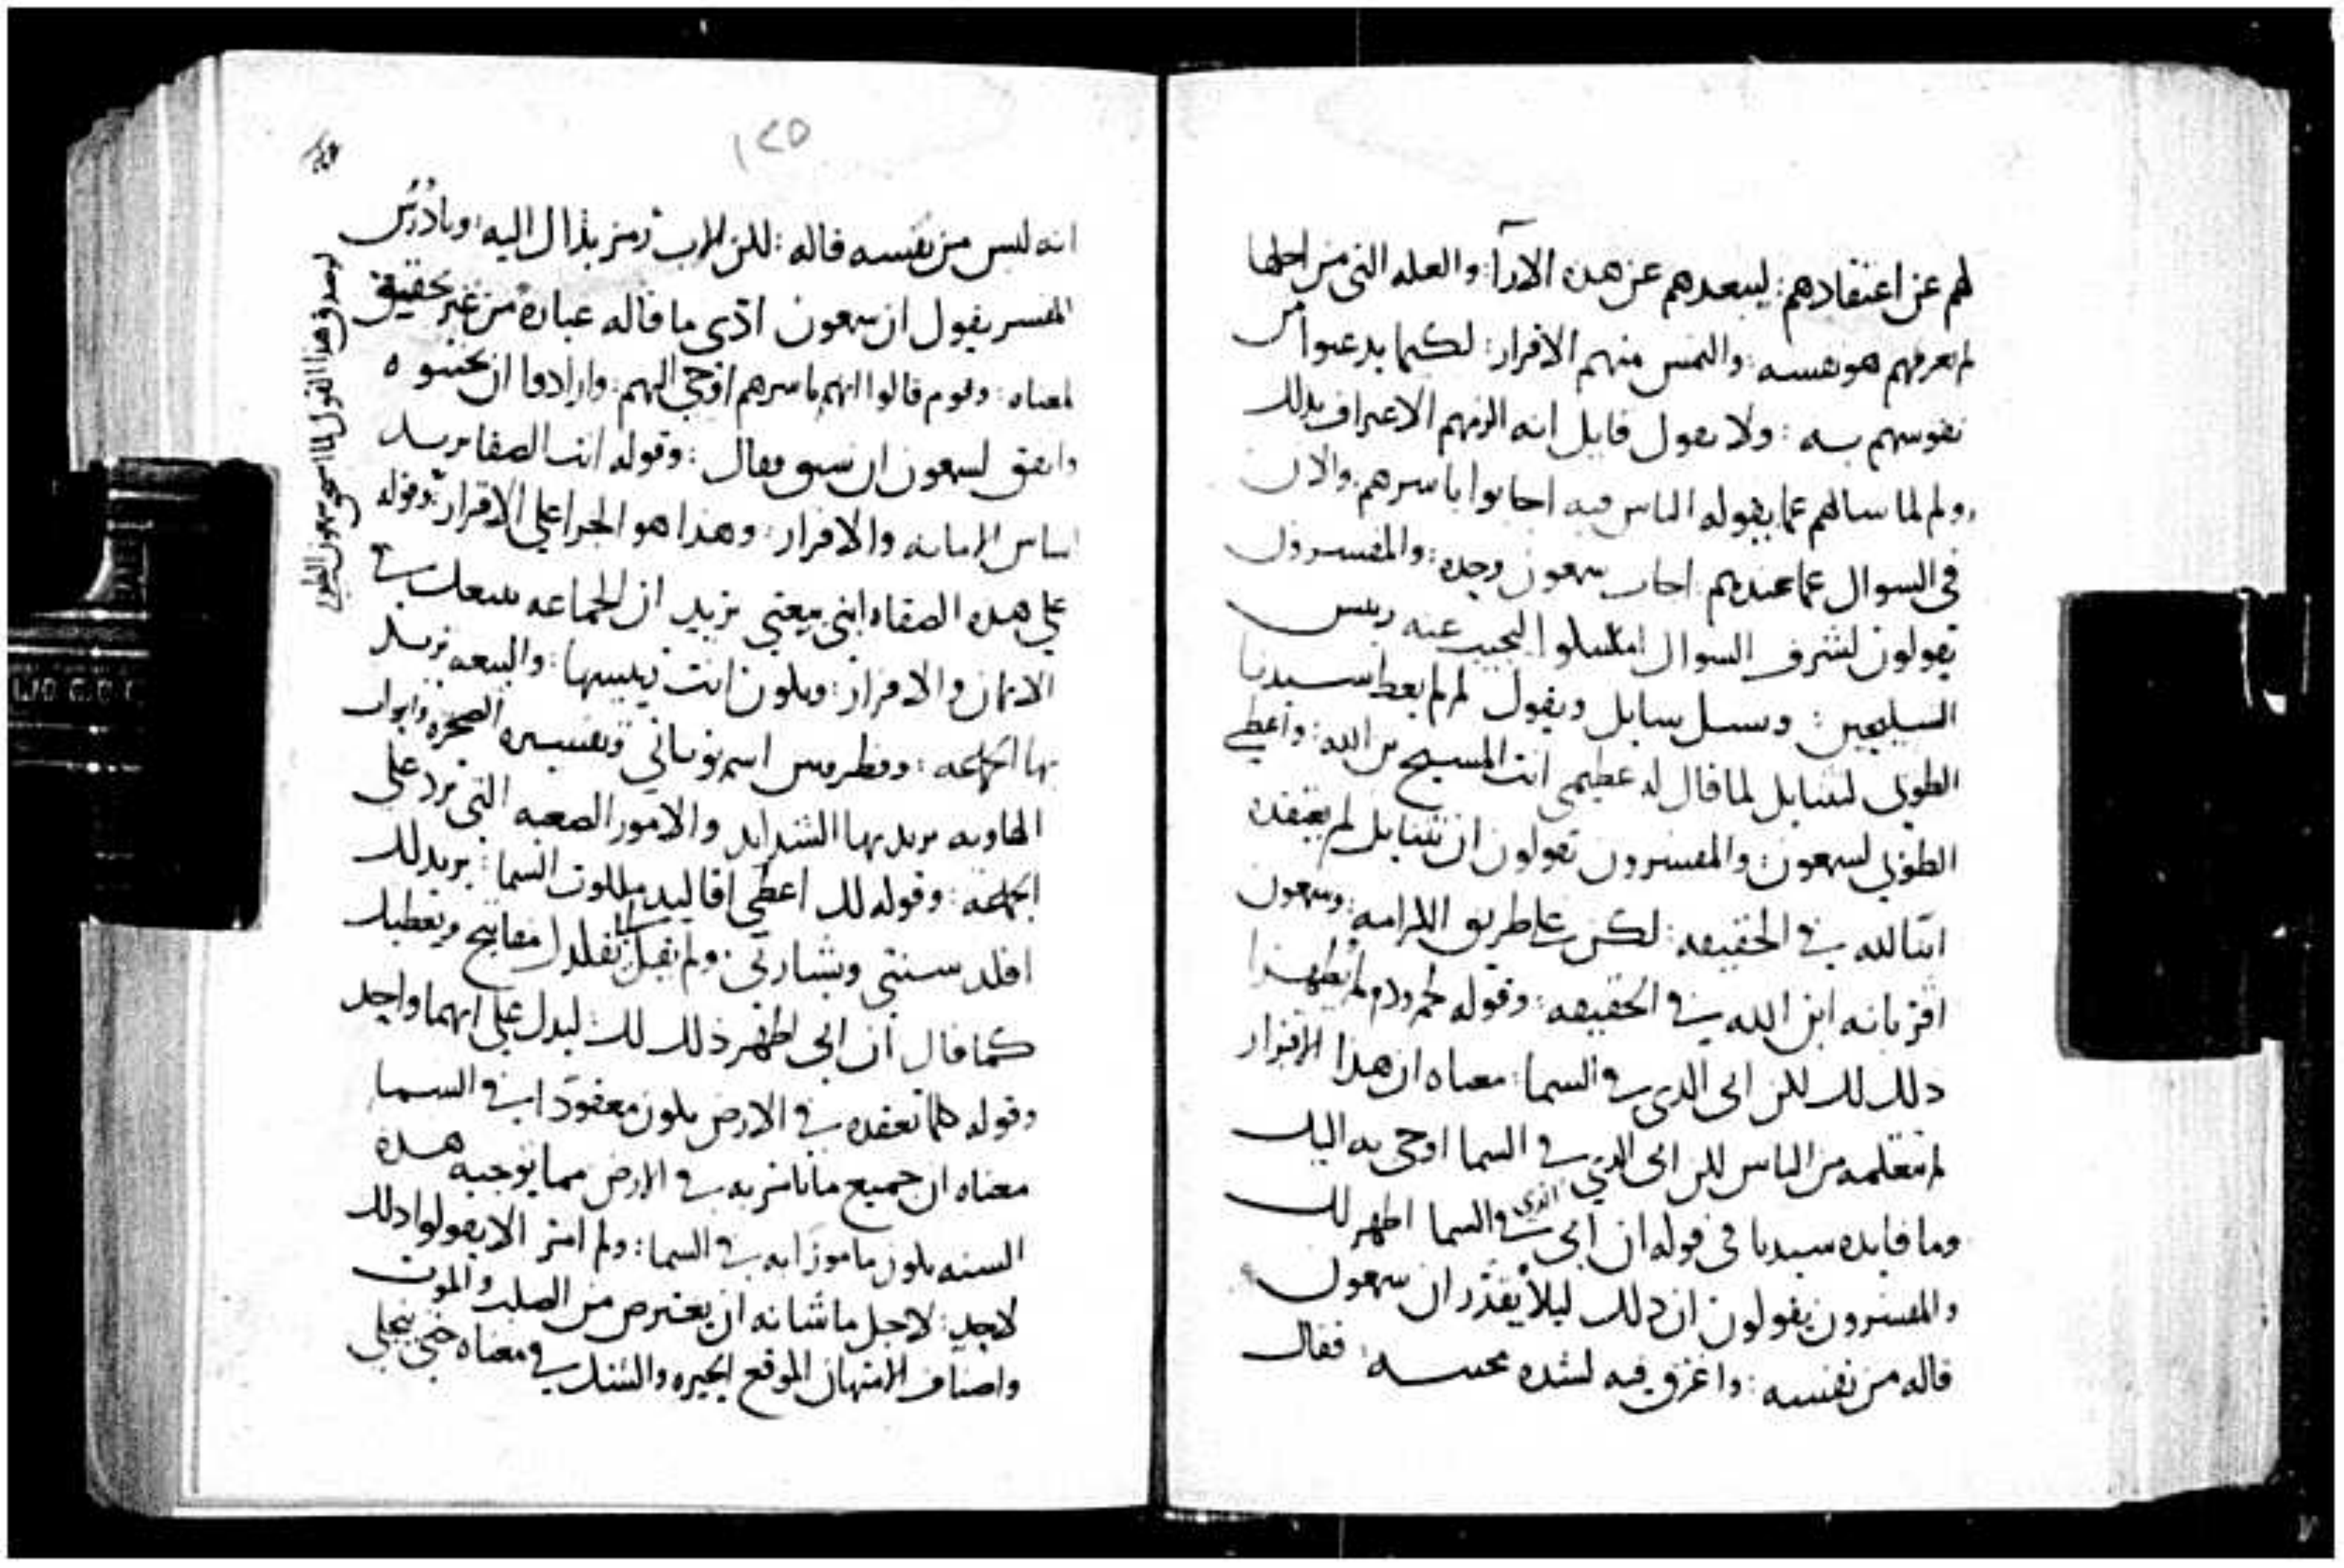 لهم عن اعتقادهم: ليبعدهم عن هذه الارآ: والعله التي من اجلها
لم يعرفهم هو نفسه: والتمس منهم الاقرار: لكيما يدعوا من
نفوسهم به: ولا يقول قايل انه الزمهم الاعتراف بذلك
ولم لما سالهم عما يقوله الناس فيه اجابوا باسرهم: والان
في السوال عما عندهم اجاب سمعون وحده: والمفسرون
يقولون لشرف السوال ليجيب عنه رييس
السليحين: ويسل سايل ويقول لم لم يعط سيدنا
الطوبى لنثنايل لما قال له عظيمي انت المسيح بن الله: واعطي
الطوبى لسمعون: والمفسرون يقولون ان نثنايل لم يعتقده
ابنا لله في الحقيقه: لكن على طريق الكرامه: وسمعون
اقر بانه ابن الله في الحقيقه: وقوله لحم ودم لم يظهرا
ذلك لك لكن ابي الذي في السما: معناه ان هذا الاقرار
لم تتعلمه من الناس لكن ابي الذي في السما اوحى به اليك
وما فايده سيدنا في قوله ان ابي الذي في السما اظهر لك
والمفسرون يقولون ان ذلك ليلا يقدر ان سمعون
قاله من نفسه: واغرق فيه لشده محبته: فقال
١٢٥
انه ليس من نفسه قاله: لكن الاب رمز بذاك اليه: وتادرس
المفسر يقول ان سمعون ادى ما قاله عباره من غير تحقيق
لمعناه: وقوم قالوا انهم باسرهم اوحي اليهم: وارادوا ان يجيبوه
واتفق لسمعون ان سبق فقال: وقوله انت الصفا يريد
اساس الامانه والاقرار: وهذا هو الجزا على الاقرار: وقوله
على هذه الصفاه ابني بيعتي يريد ان الجماعه تتبعك في
الايمان والاقرار: ويكون انت رييسها: والبيعه يريد
بها الجماعه: وفطرس اسم يوناني وتفسيره الصخره: وابواب
الهاويه يريد بها الشدايد والامور الصعبه التي ترد على
الجماعه: وقوله لك اعطي اقاليد ملكوت السما: يريد لك
اقلد سنتي وبشارتي: ولم يقل مفاتيح ونعطيك
كما قال ان ابي اظهر ذلك لك: ليدل على انهما واحد
وقوله كلما تعقده في الارض يكون معقودا في السما
معناه ان جميع ما تامر به في الارض مما يوجبه هذه
السنه يكون مامورا به في السما: ولم امر الا يقولوا ذلك
لاحد: لاجل ما شانه ان يعترض من الصلب والموت
واصناف الامتهان الموقع الحيره والشك في معناه حتى ينجلي
هذا القول سمعون الطوبى